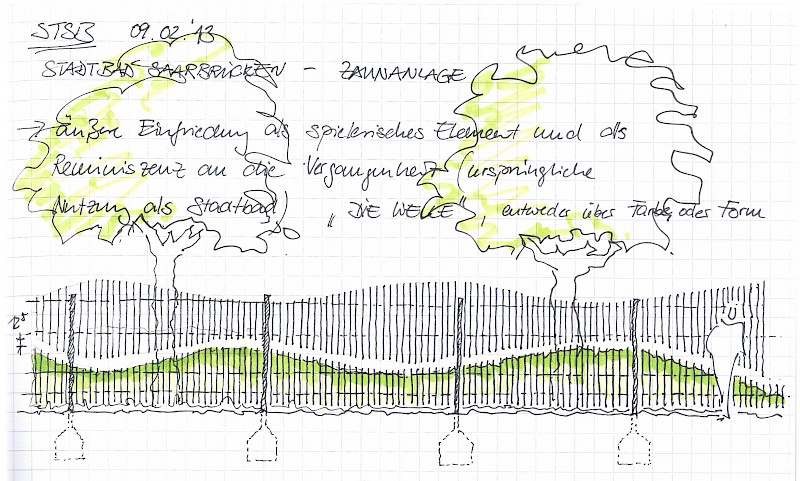 STSB 09.02.'13
STADTBAD SAARBRÜCKEN - ZAUNANLAGE
→ äußere Einfriedung als spielerisches Element und als
Reminiszenz an die Vergangenheit (ursprüngliche
Nutzung als Stadtbad) „DIE WELLE", entweder über Farbe, oder Form